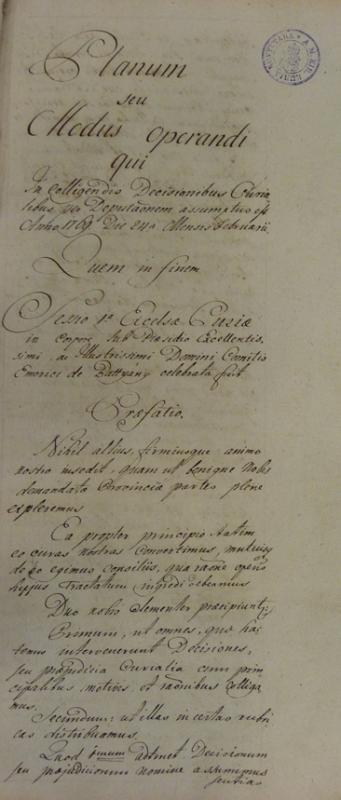 Planum
seu
Modus operandi
qui
In colligendis Decisionibus Curia
libus per Deputaonem assumptus est
Anno 1769 Die 24a Mensis Februarii.
Quem in finem
Sessio 1a Excelsæ Curiæ
in corpore sub Præsidio Excellentis
simi ac Illustrissimi Domini Comitis
Emerici de Battyány celebrata fuit
Præfatio.
Nihil altius, firmiusque animo
nostro insedit, quam ut benigne nobis
demandatæ Provinciæ partes plene
expleremus
Ea propter principio statim
eo curas nostras convertimus, mutuisq
de eo egimus consiliis, qua raone operis
hujus Tractatum ingredi debeamus
Duo nobis clementer præcipiuntur
Primum, ut omnes, quæ hac
tenus intervenerunt Decisiones,
seu præjudicia Curialia cum prin
cipalibus motivis, et raonibus colliga
mus.
Secundum: ut illas in certas rubri
cas distribuamus.
Quod primum attinet Decisionum
seu præjudiciorum nomine assumimus
sentias